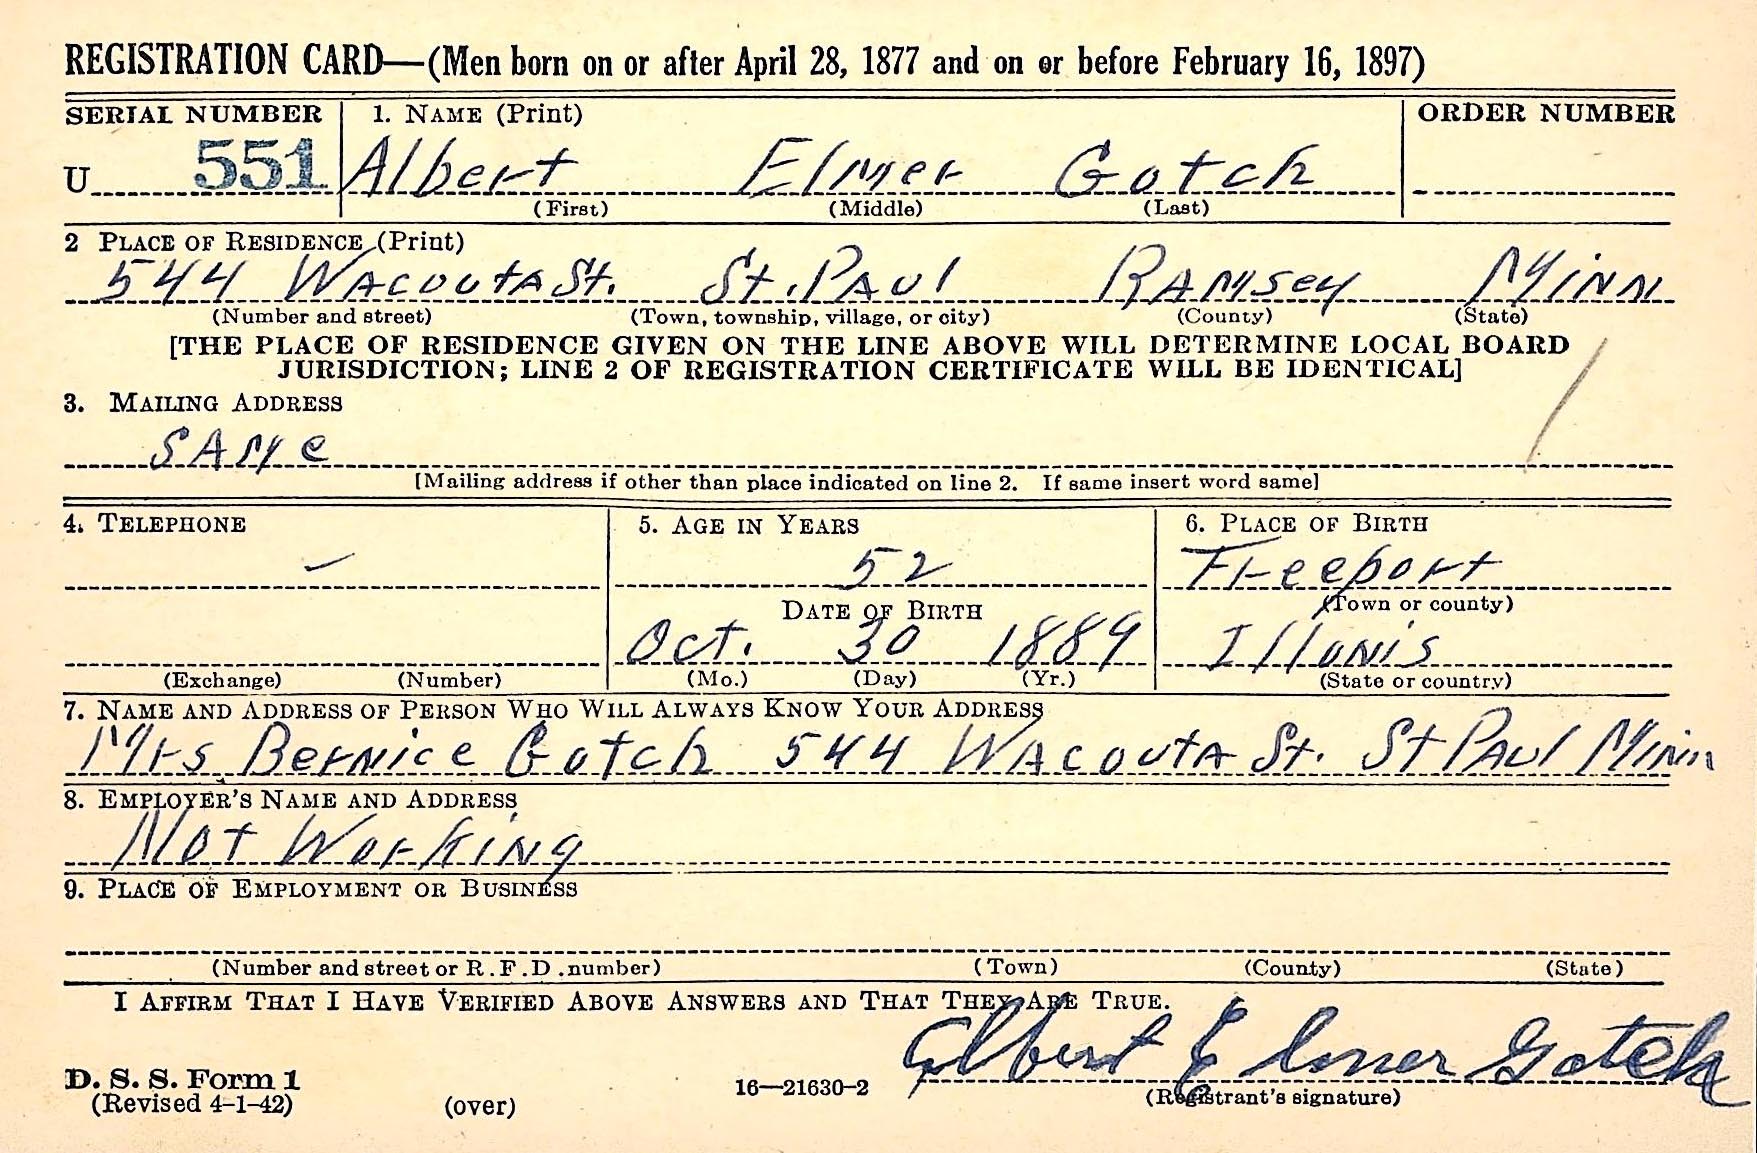 REGISTRATION CARD—(Men born on or after April 28, 1877 and on or before February 16, 1897)
SERIAL NUMBER 1. NAME (Print) ORDER NUMBER
U 551 Albert Elmer Gotch
(First) (Middle) (Last)
2 PLACE OF RESIDENCE (Print)
544 Wacouta St. St. Paul Ramsey Minn
(Number and street) (Town, township, village, or city) (County) (State)
[THE PLACE OF RESIDENCE GIVEN ON THE LINE ABOVE WILL DETERMINE LOCAL BOARD
JURISDICTION; LINE 2 OF REGISTRATION CERTIFICATE WILL BE IDENTICAL]
3. MAILING ADDRESS
Same
[Mailing address if other than place indicated on line 2. If same insert word same]
4. TELEPHONE 5. AGE IN YEARS 6. PLACE OF BIRTH
– 52 Freeport
DATE OF BIRTH (Town or county)
Oct. 30 1889 Illonis
(Exchange) (Number) (Mo.) (Day) (Yr.) (State or country)
7. NAME AND ADDRESS OF PERSON WHO WILL ALWAYS KNOW YOUR ADDRESS
Mrs Bernice Gotch 544 Wacouta St. St Paul Minn
8. EMPLOYER'S NAME AND ADDRESS
Not Working
9. PLACE OF EMPLOYMENT OR BUSINESS
(Number and street or R.F.D. number) (Town) (County) (State)
I AFFIRM THAT I HAVE VERIFIED ABOVE ANSWERS AND THAT THEY ARE TRUE.
Albert Elmer Gotch
D. S. S. Form 1
(Revised 4-1-42) (over) 16—21630-2 (Registrant's signature)